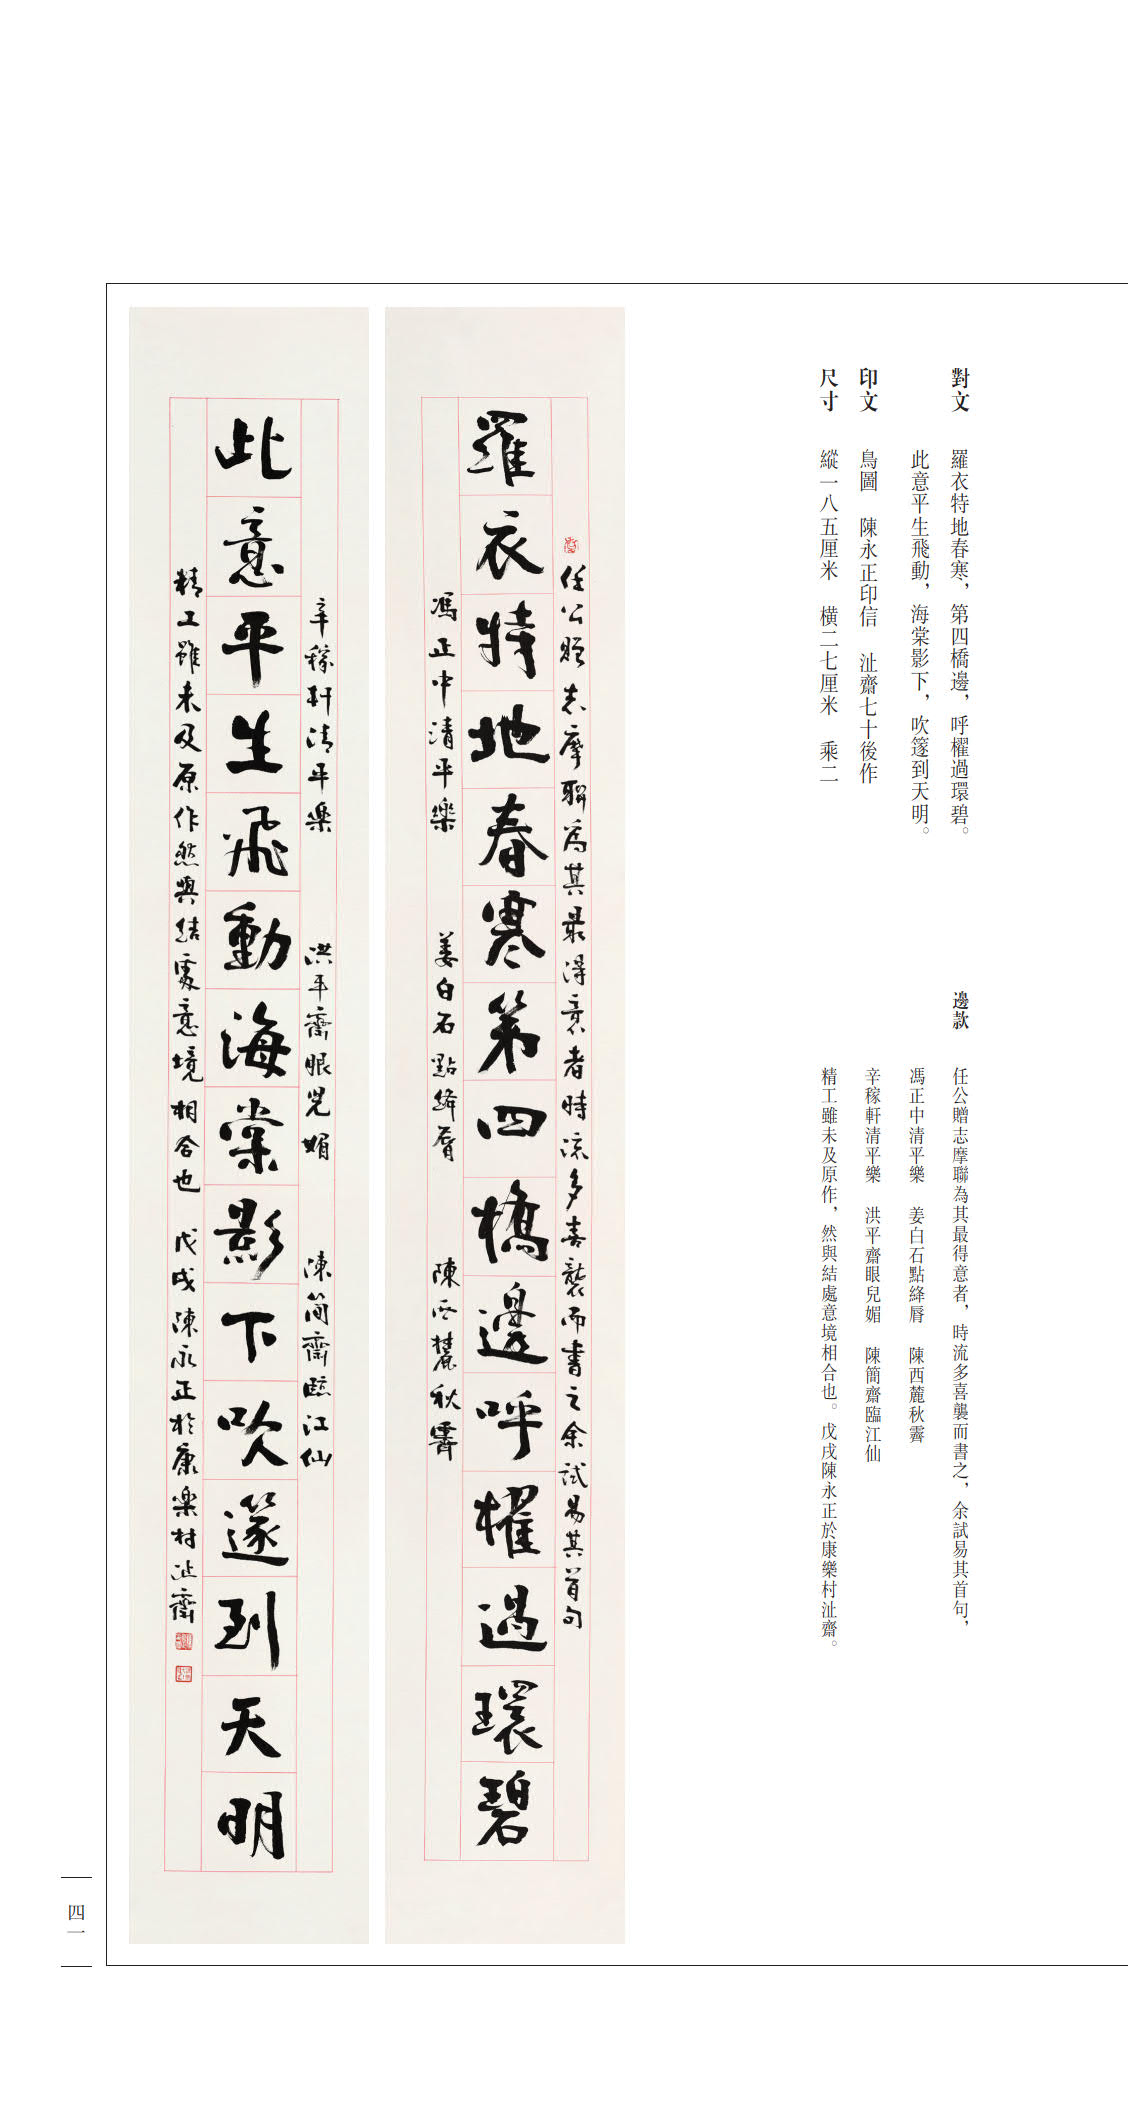 對文　羅衣特地春寒，第四橋邊，呼櫂過環碧。
此意平生飛動，海棠影下，吹篴到天明。
印文　鳥圖　陳永正印信　沚齋七十後作
尺寸　縱一八五厘米　橫二七厘米　乘二
邊款　任公贈志摩聯為其最得意者，時流多喜襲而書之，余試易其首句，
馮正中清平樂　姜白石點絳脣　陳西麓秋霽
辛稼軒清平樂　洪平齋眼兒媚　陳簡齋臨江仙
精工雖未及原作，然與結處意境相合也。戊戌陳永正於康樂村沚齋。
任公贈志摩聯為其最得意者時流多喜襲而書之余試易其首句
羅衣特地春寒第四橋邊呼櫂過環碧
馮正中清平樂　姜白石點絳脣　陳西麓秋霽
辛稼軒清平樂　洪平齋眼兒媚　陳簡齋臨江仙
此意平生飛動海棠影下吹篴到天明
精工雖未及原作然與結處意境相合也　戊戌陳永正於康樂村沚齋
四一